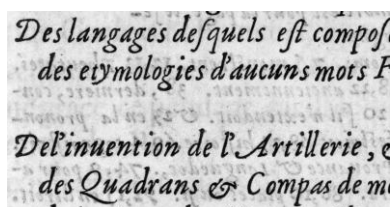 Des langages deſquels eſt compoſ
des etymologies d'aucuns mots F
Del'inuention de l'Artillerie, &
des Quadrans & Compas de m